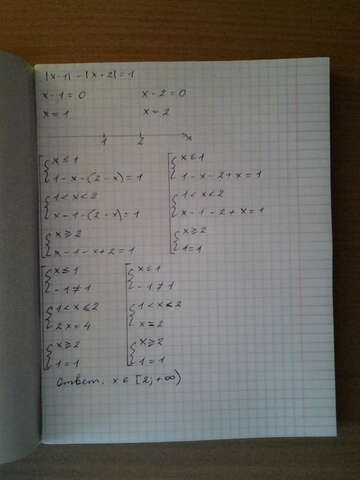 |x-1| - |x+2| = 1
x-1=0 x-2=0
x=1 x=2
1 2 x
x≤1 x≤1
1-x-(2-x)=1 1-x-2+x=1
1<x<2 1<x<2
x-1-(2-x)=1 x-1-2+x=1
x≥2 x≥2
x-1-x+2=1 1=1
x≤1 x≤1
-1≠1 -1≠1
1<x≤2 1<x≤2
2x=4 x=2
x≥2 x≥2
1=1 1=1
Ответ. x ∈ [2; +∞)